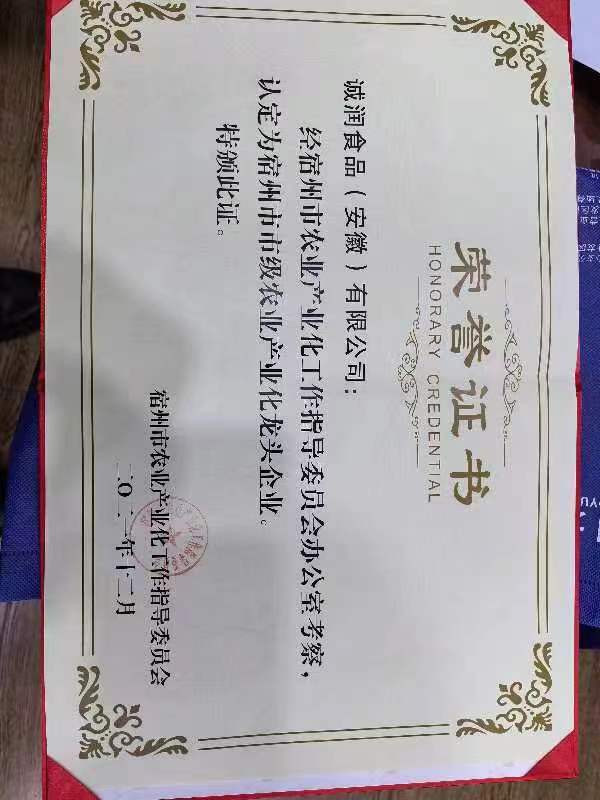 荣誉证书
HONORARY CREDENTIAL
诚润食品（安徽）有限公司：
经宿州市农业产业化工作指导委员会办公室考察，
认定为宿州市市级农业产业化龙头企业。
特颁此证。
宿州市农业产业化工作指导委员会
二〇二一年十二月